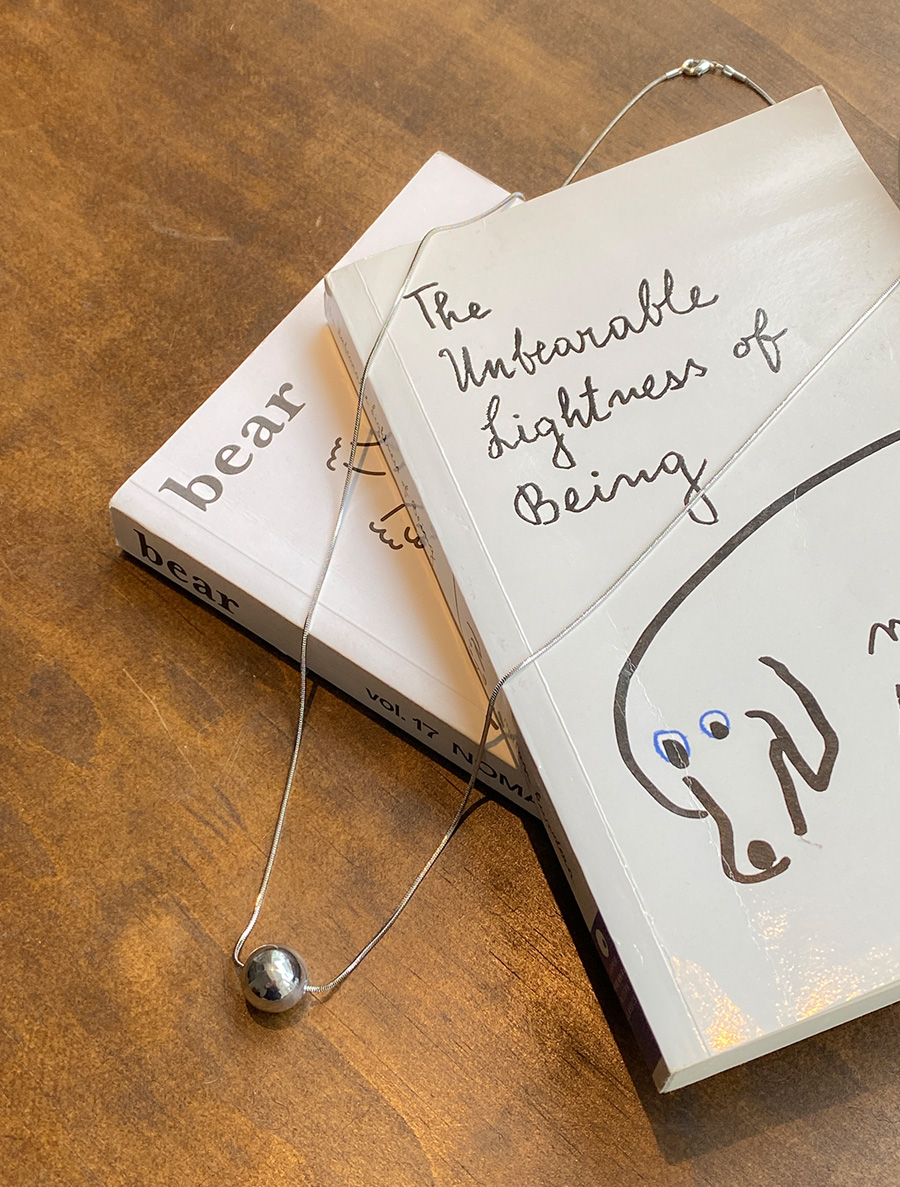 The
Unbearable
Lightness of
Being
bear
bear
vol. 17 NOMA